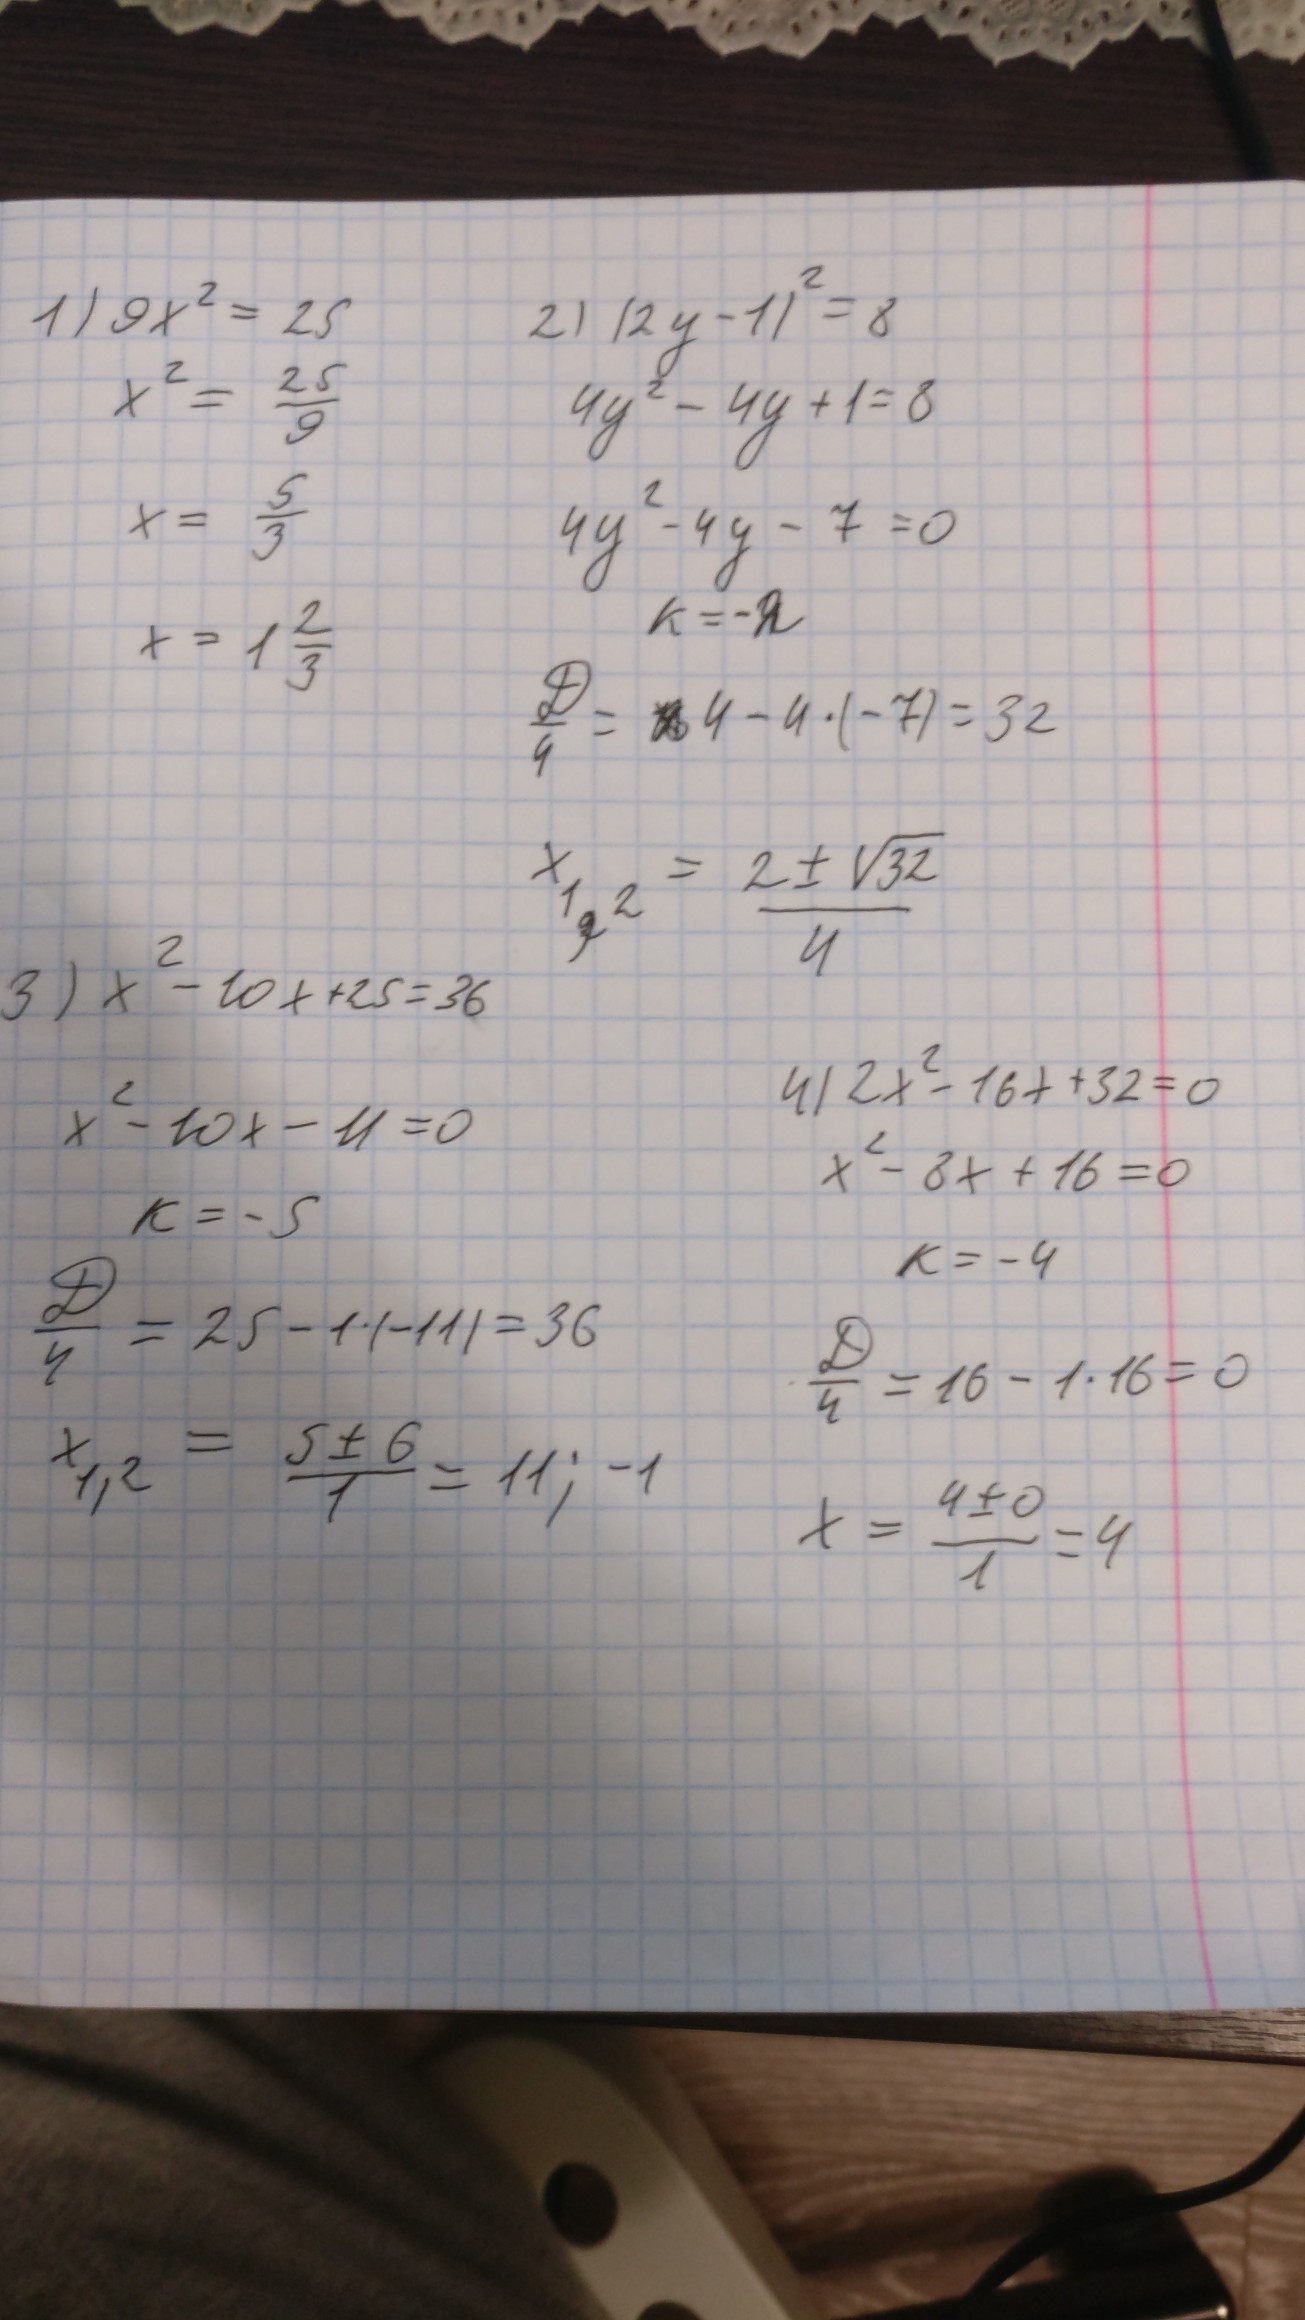 1) 9x² = 25
x² = 25/9
x = 5/3
x = 1 2/3
2) (2y - 1)² = 8
4y² - 4y + 1 = 8
4y² - 4y - 7 = 0
к = -2
D/4 = 4 - 4·(-7) = 32
x1,2 = (2 ± √32)/4
3) x² - 10x + 25 = 36
x² - 10x - 11 = 0
к = -5
D/4 = 25 - 1·(-11) = 36
x1,2 = (5 ± 6)/1 = 11; -1
4) 2x² - 16x + 32 = 0
x² - 8x + 16 = 0
к = -4
D/4 = 16 - 1·16 = 0
x = (4 ± 0)/1 = 4